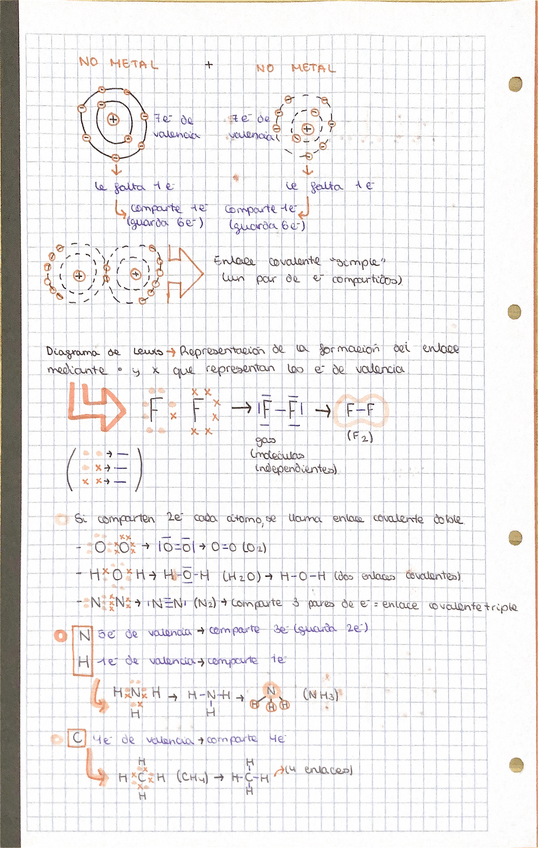 NO METAL + NO METAL
7e⁻ de valencia 7e⁻ de valencia
le falta 1e⁻ le falta 1e⁻
comparte 1e⁻ comparte 1e⁻
(guarda 6e⁻) (guarda 6e⁻)
Enlace covalente "simple"
(un par de e⁻ compartidos)
Diagrama de Lewis → Representación de la formación del enlace
mediante • y x que representan los e⁻ de valencia
F F → |F-F| → F-F
gas (F₂)
(moléculas
independientes)
•• → —
•x → —
xx → —
Si comparten 2e⁻ cada átomo, se llama enlace covalente doble
- O O → |O=O| → O=O (O₂)
- H O H → H-O-H (H₂O) → H-O-H (dos enlaces covalentes)
- N N → |N≡N| (N₂) → comparte 3 pares de e⁻ = enlace covalente triple
N 5e⁻ de valencia → comparte 3e⁻ (guarda 2e⁻)
H 1e⁻ de valencia → comparte 1e⁻
H N H → H-N-H → N (NH₃)
H H H H H
C 4e⁻ de valencia → comparte 4e⁻
H H
H C H (CH₄) → H-C-H → (4 enlaces)
H H